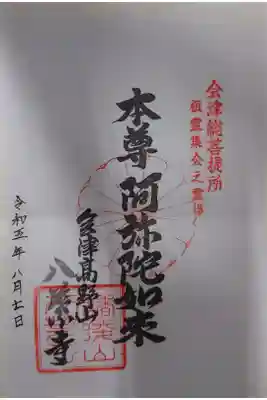 会津総菩提所
祖霊集会之霊場
本尊阿弥陀如来
会津高野山
八葉寺
令和五年八月七日